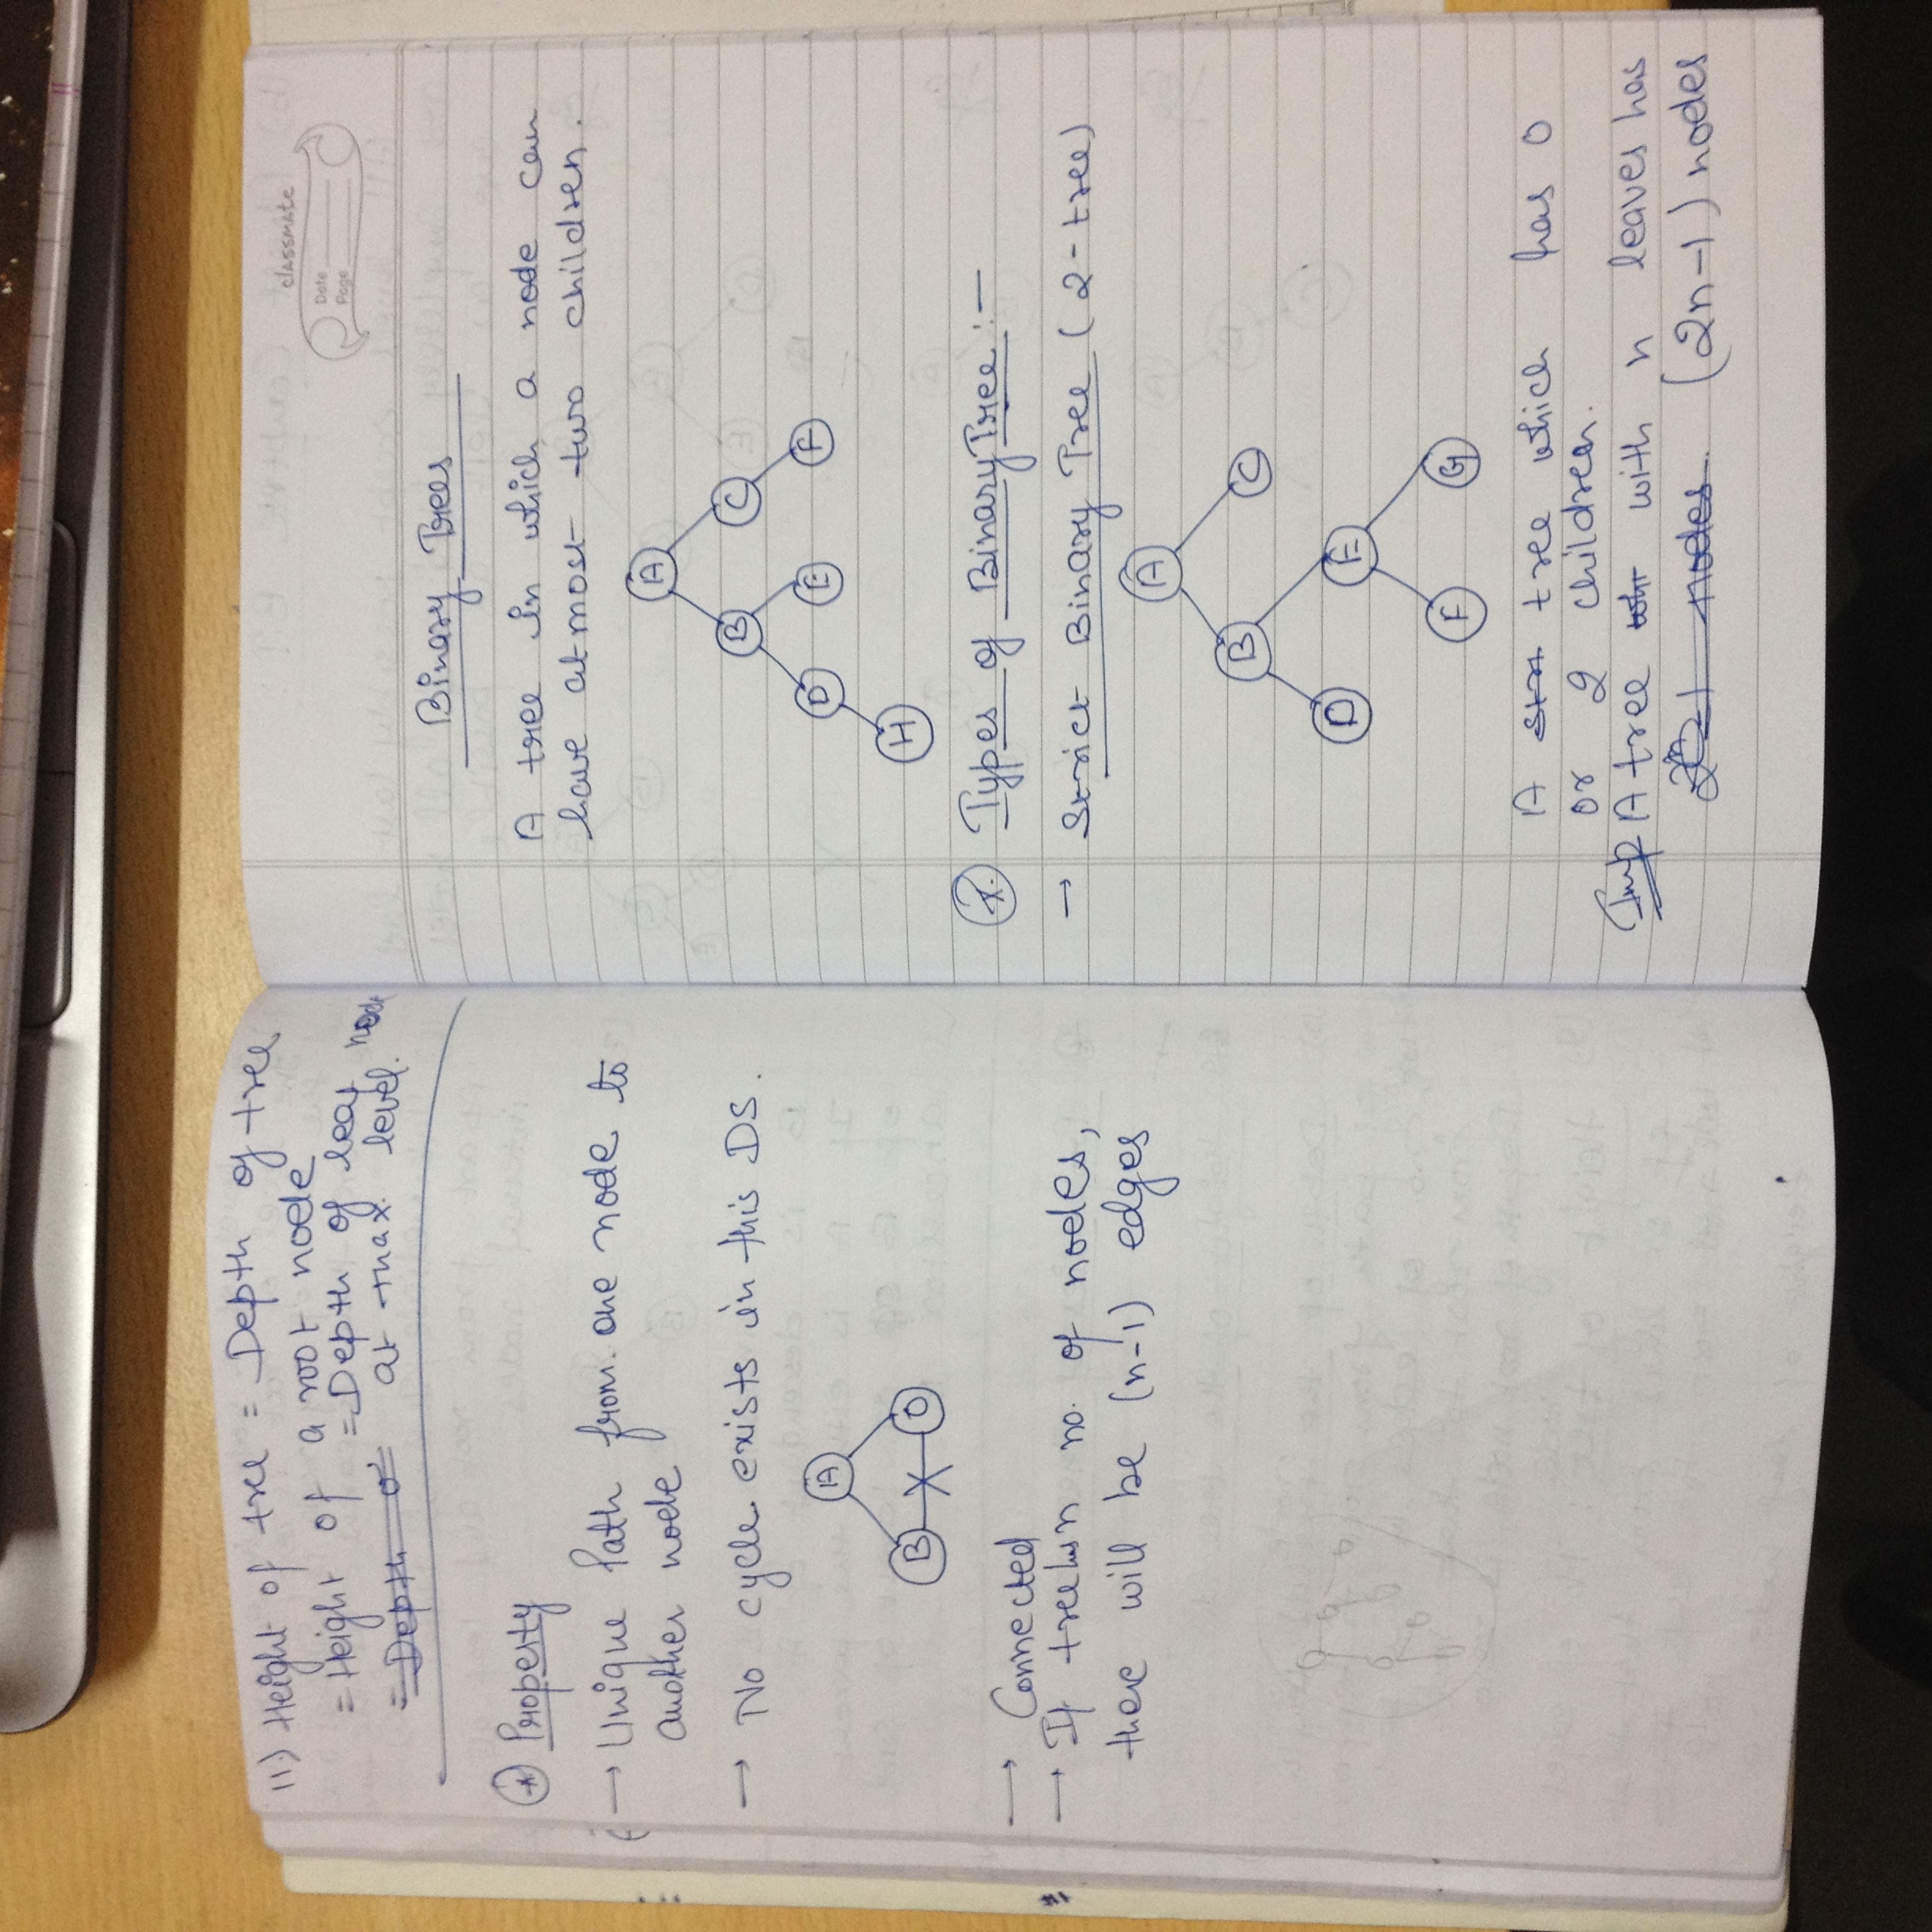 11.) Height of tree = Depth of tree
= Height of a root node
= Depth of leaf node
= Depth of at max level.
* Property
→ Unique Path from one node to
another node
→ No cycle exists in this DS.
A
B
→ Connected
→ If tree has n no. of nodes,
there will be (n-1) edges
classmate
Date
Page
Binary Trees
A tree in which a node can
have atmost two children.
A
B C
D E F
H
* Types of Binary Tree :—
→ Strict Binary Tree (2-tree)
A
B C
D E
F G
A tree which has 0
or 2 children.
Imp A tree with n leaves has
nodes. (2n-1) nodes